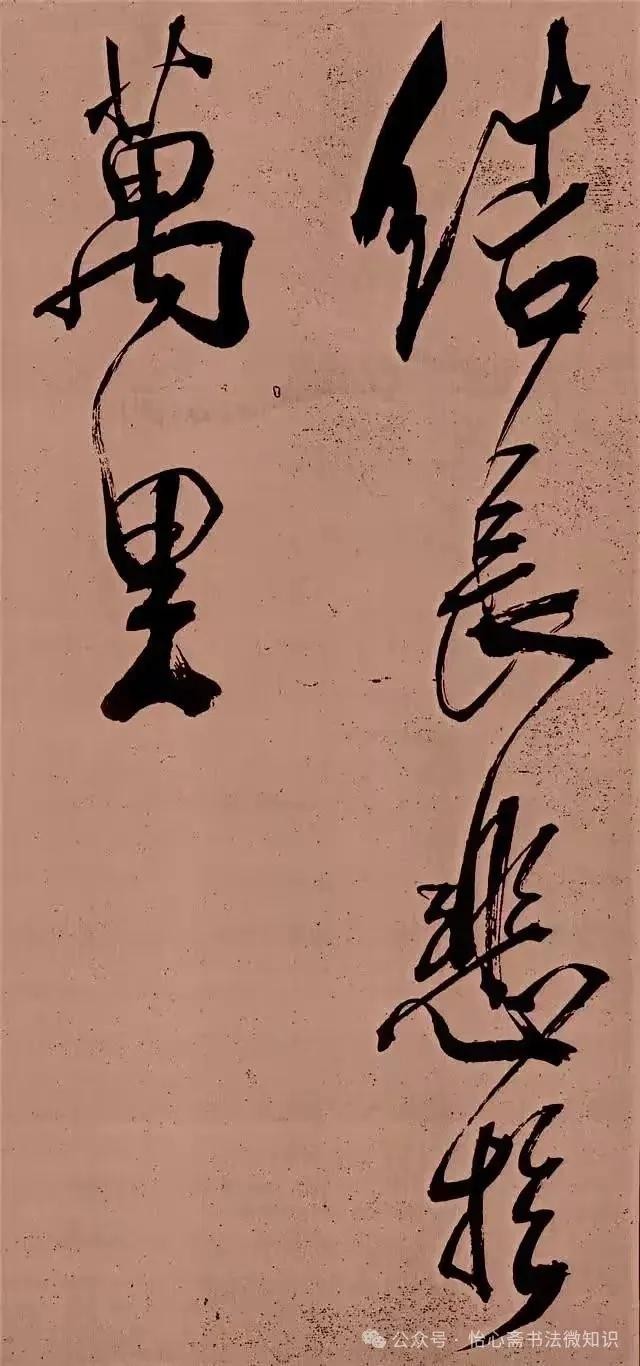 结長悲於
萬里
公众号·怡心斋书法微知识